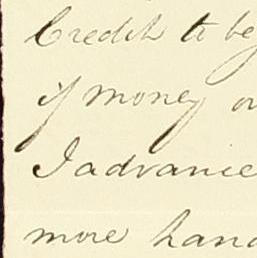 Credit to be
if money or
I advance
more hand